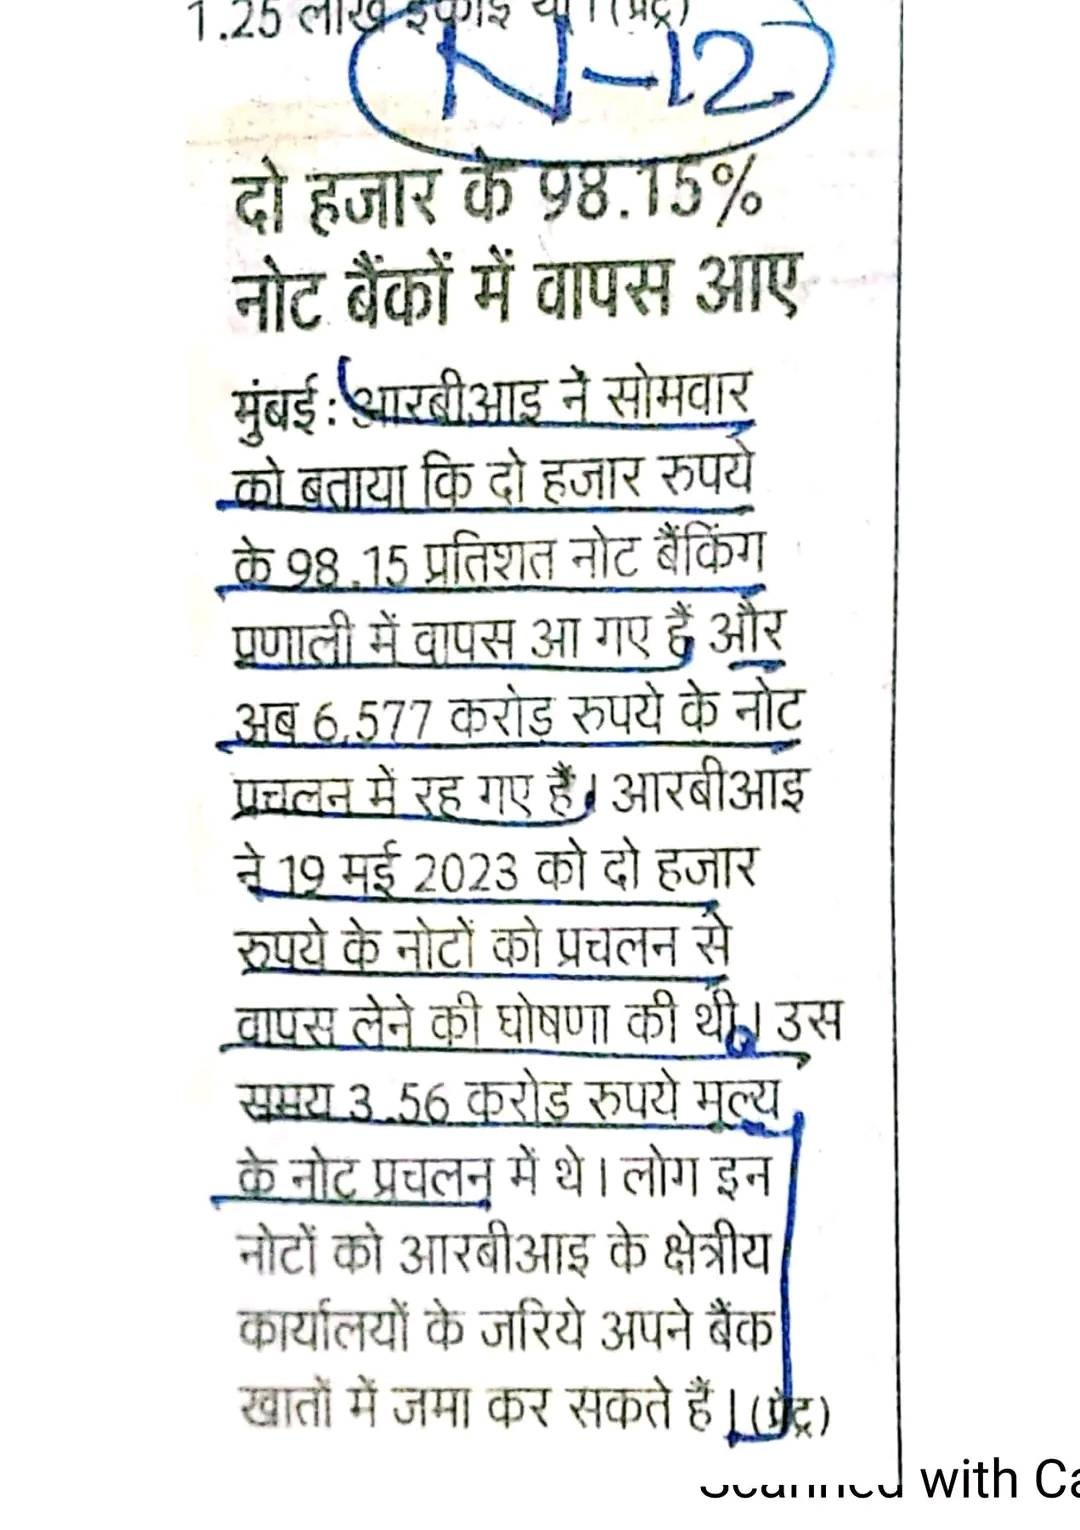 1.25 लाख इकाइ था। (प्रेट्र)
N-12
दो हजार के 98.15%
नोट बैंकों में वापस आए
मुंबई: आरबीआइ ने सोमवार
को बताया कि दो हजार रुपये
के 98.15 प्रतिशत नोट बैंकिंग
प्रणाली में वापस आ गए हैं और
अब 6,577 करोड़ रुपये के नोट
प्रचलन में रह गए हैं। आरबीआइ
ने 19 मई 2023 को दो हजार
रुपये के नोटों को प्रचलन से
वापस लेने की घोषणा की थी। उस
समय 3.56 करोड़ रुपये मूल्य
के नोट प्रचलन में थे। लोग इन
नोटों को आरबीआइ के क्षेत्रीय
कार्यालयों के जरिये अपने बैंक
खातों में जमा कर सकते हैं। (प्रेट्र)
Scanned with Ca